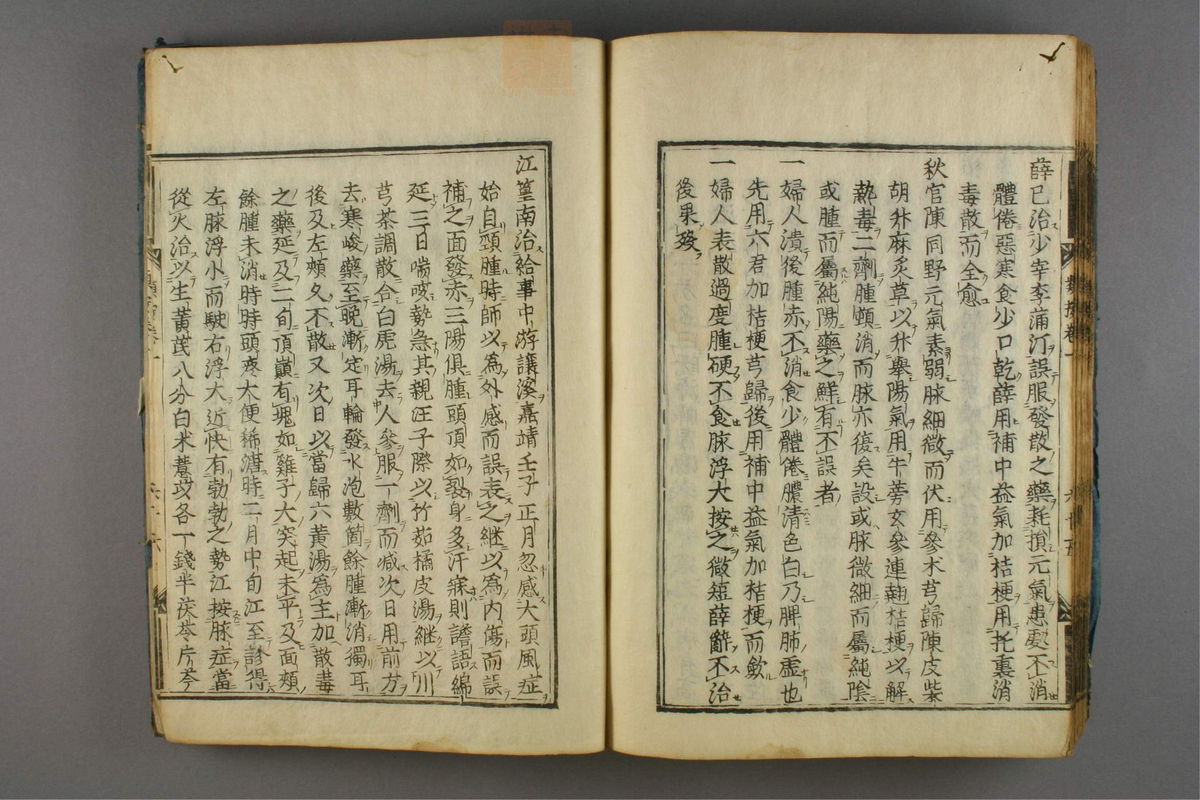 薛已治少宰李蒲汀誤服發散之藥耗損元氣患處不消
體倦惡寒食少口乾薛用補中益氣加桔梗用托裏消
毒散而全愈
秋官陳同野元氣素弱脉細微而伏用參朮芎歸陳皮柴
胡升麻炙草以升舉陽氣用牛蒡玄參連翹桔梗以解
熱毒二劑腫頓消而脉亦復矣設或脉微細而屬純陰
或腫而屬純陽藥之鮮有不誤者
一婦人潰後腫赤不消食少體倦膿清色白乃脾肺虛也
先用六君加桔梗芎歸後用補中益氣加桔梗而歛
一婦人表散過度腫硬不食脉浮大按之微短薛辭不治
後果歿
江篁南治給事中游讓溪嘉靖壬子正月忽感大頭風症
始自頸腫時師以為外感而誤表之繼以為內傷而誤
補之面發赤三陽俱腫頭頂如裂身多汗寐則譫語綿
延三日喘咳勢急其親汪子際以竹茹橘皮湯繼以川
芎茶調散合白虎湯去人參服一劑而減次日用前方
去寒峻藥至晚漸定耳輪發水泡數箇餘腫漸消獨耳
後及左頰久不散又次日以當歸六黃湯為主加散毒
之藥延及二旬頂巔有塊如雞子大突起未平及面頰
餘腫未消時時頭疼大便稀溏時二月中旬江至診得
左脉浮小而駛右浮大近快有勃勃之勢江按脉症當
從火治以生黃芪八分白朮薏苡各一錢半茯苓片芩